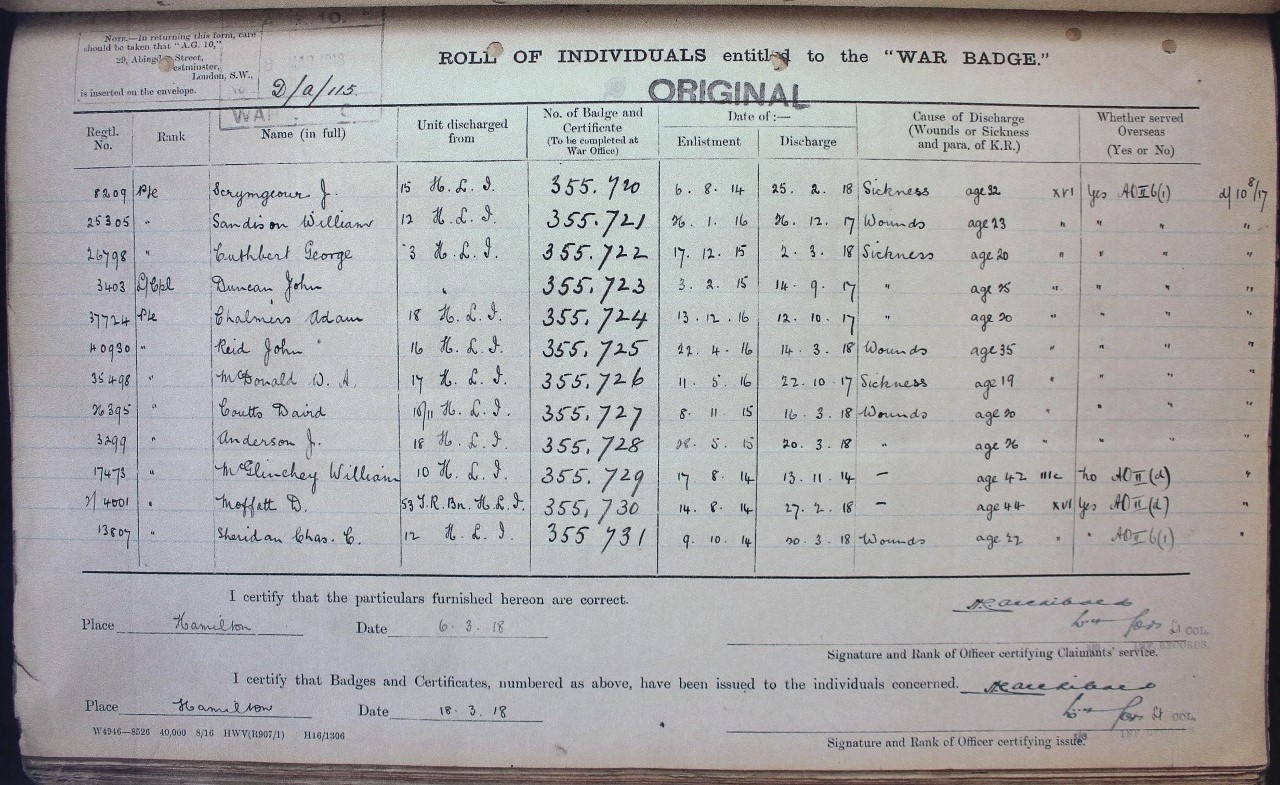 NOTE.—In returning this form, care
should be taken that "A.G. 10,"
29, Street,
estminster,
London, S.W.,
is inserted on the envelope.
D/a/115.
ROLL OF INDIVIDUALS entitled to the "WAR BADGE."
ORIGINAL
Regtl. No. Rank Name (in full) Unit discharged from No. of Badge and Certificate (To be completed at War Office) Date of:— Enlistment Discharge Cause of Discharge (Wounds or Sickness and para. of K.R.) Whether served Overseas (Yes or No)
8209 Pte Scrymgeour J. 15 H. L. I. 355.720 6. 8. 14 25. 2. 18 Sickness age 32 XVI Yes AO II 6(1) d/ 10 8/17
25305 " Sandison William 12 H. L. I. 355.721 26. 1. 16 26. 12. 17 Wounds age 23 " " " "
26798 " Cuthbert George 3 H. L. I. 355.722 17. 12. 15 2. 3. 18 Sickness age 20 " " " "
3403 L/Cpl Duncan John " 355.723 3. 2. 15 14. 9. 17 " age 25 " " " "
37724 Pte Chalmers Adam 18 H. L. I. 355.724 13. 12. 16 12. 10. 17 " age 20 " " " "
40930 " Reid John 16 H. L. I. 355.725 22. 4. 16 14. 3. 18 Wounds age 35 " " " "
35498 " McDonald W. A. 17 H. L. I. 355.726 11. 5. 16 22. 10. 17 Sickness age 19 " " " "
26395 " Coutts David 10/11 H. L. I. 355.727 8. 11. 15 16. 3. 18 Wounds age 20 " " " "
3299 " Anderson J. 18 H. L. I. 355.728 28. 5. 15 20. 3. 18 " age 26 " " " "
17473 " McGlinchey William 10 H. L. I. 355.729 17. 8. 14 13. 11. 14 — age 42 IIIc No AO II (d) "
4001 " Moffatt D. 53 T.R. Bn. H. L. I. 355.730 14. 8. 14 27. 2. 18 — age 44 XVI Yes AO II (d) "
13807 " Sheridan Chas. C. 12 H. L. I. 355 731 9. 10. 14 20. 3. 18 Wounds age 22 " " AO II 6(1) "
I certify that the particulars furnished hereon are correct.
Place Hamilton Date 6. 3. 18
Lt COL.
INF RECORDS.
Signature and Rank of Officer certifying Claimants' service.
I certify that Badges and Certificates, numbered as above, have been issued to the individuals concerned.
Place Hamilton Date 18. 3. 18
Lt COL.
Signature and Rank of Officer certifying issue.
W4946—8526 40,000 8/16 HWV(R907/1) H16/1306